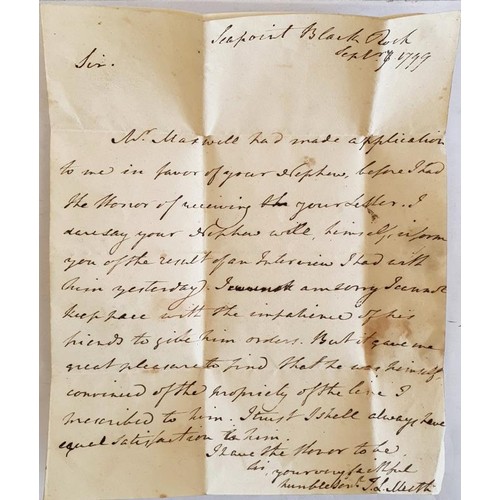 Seapoint Black Rock
Septr 9. 1799
Sir.
Mr. Maxwell had made application
to me in favor of your Nephew, before I had
the Honor of receiving your Letter. I
daresay your Nephew will, himself, inform
you of the result of an Interview I had with
him yesterday. I am sorry I cannot
keep pace with the impatience of his
friends to give him orders. But it gave me
great pleasure to find that he was himself
convinced of the propriety of the line I
prescribed to him. I trust I shall always have
equal satisfaction in him
I have the Honor to be
Sir, your very faithful
humble Servt. T. L. Meath